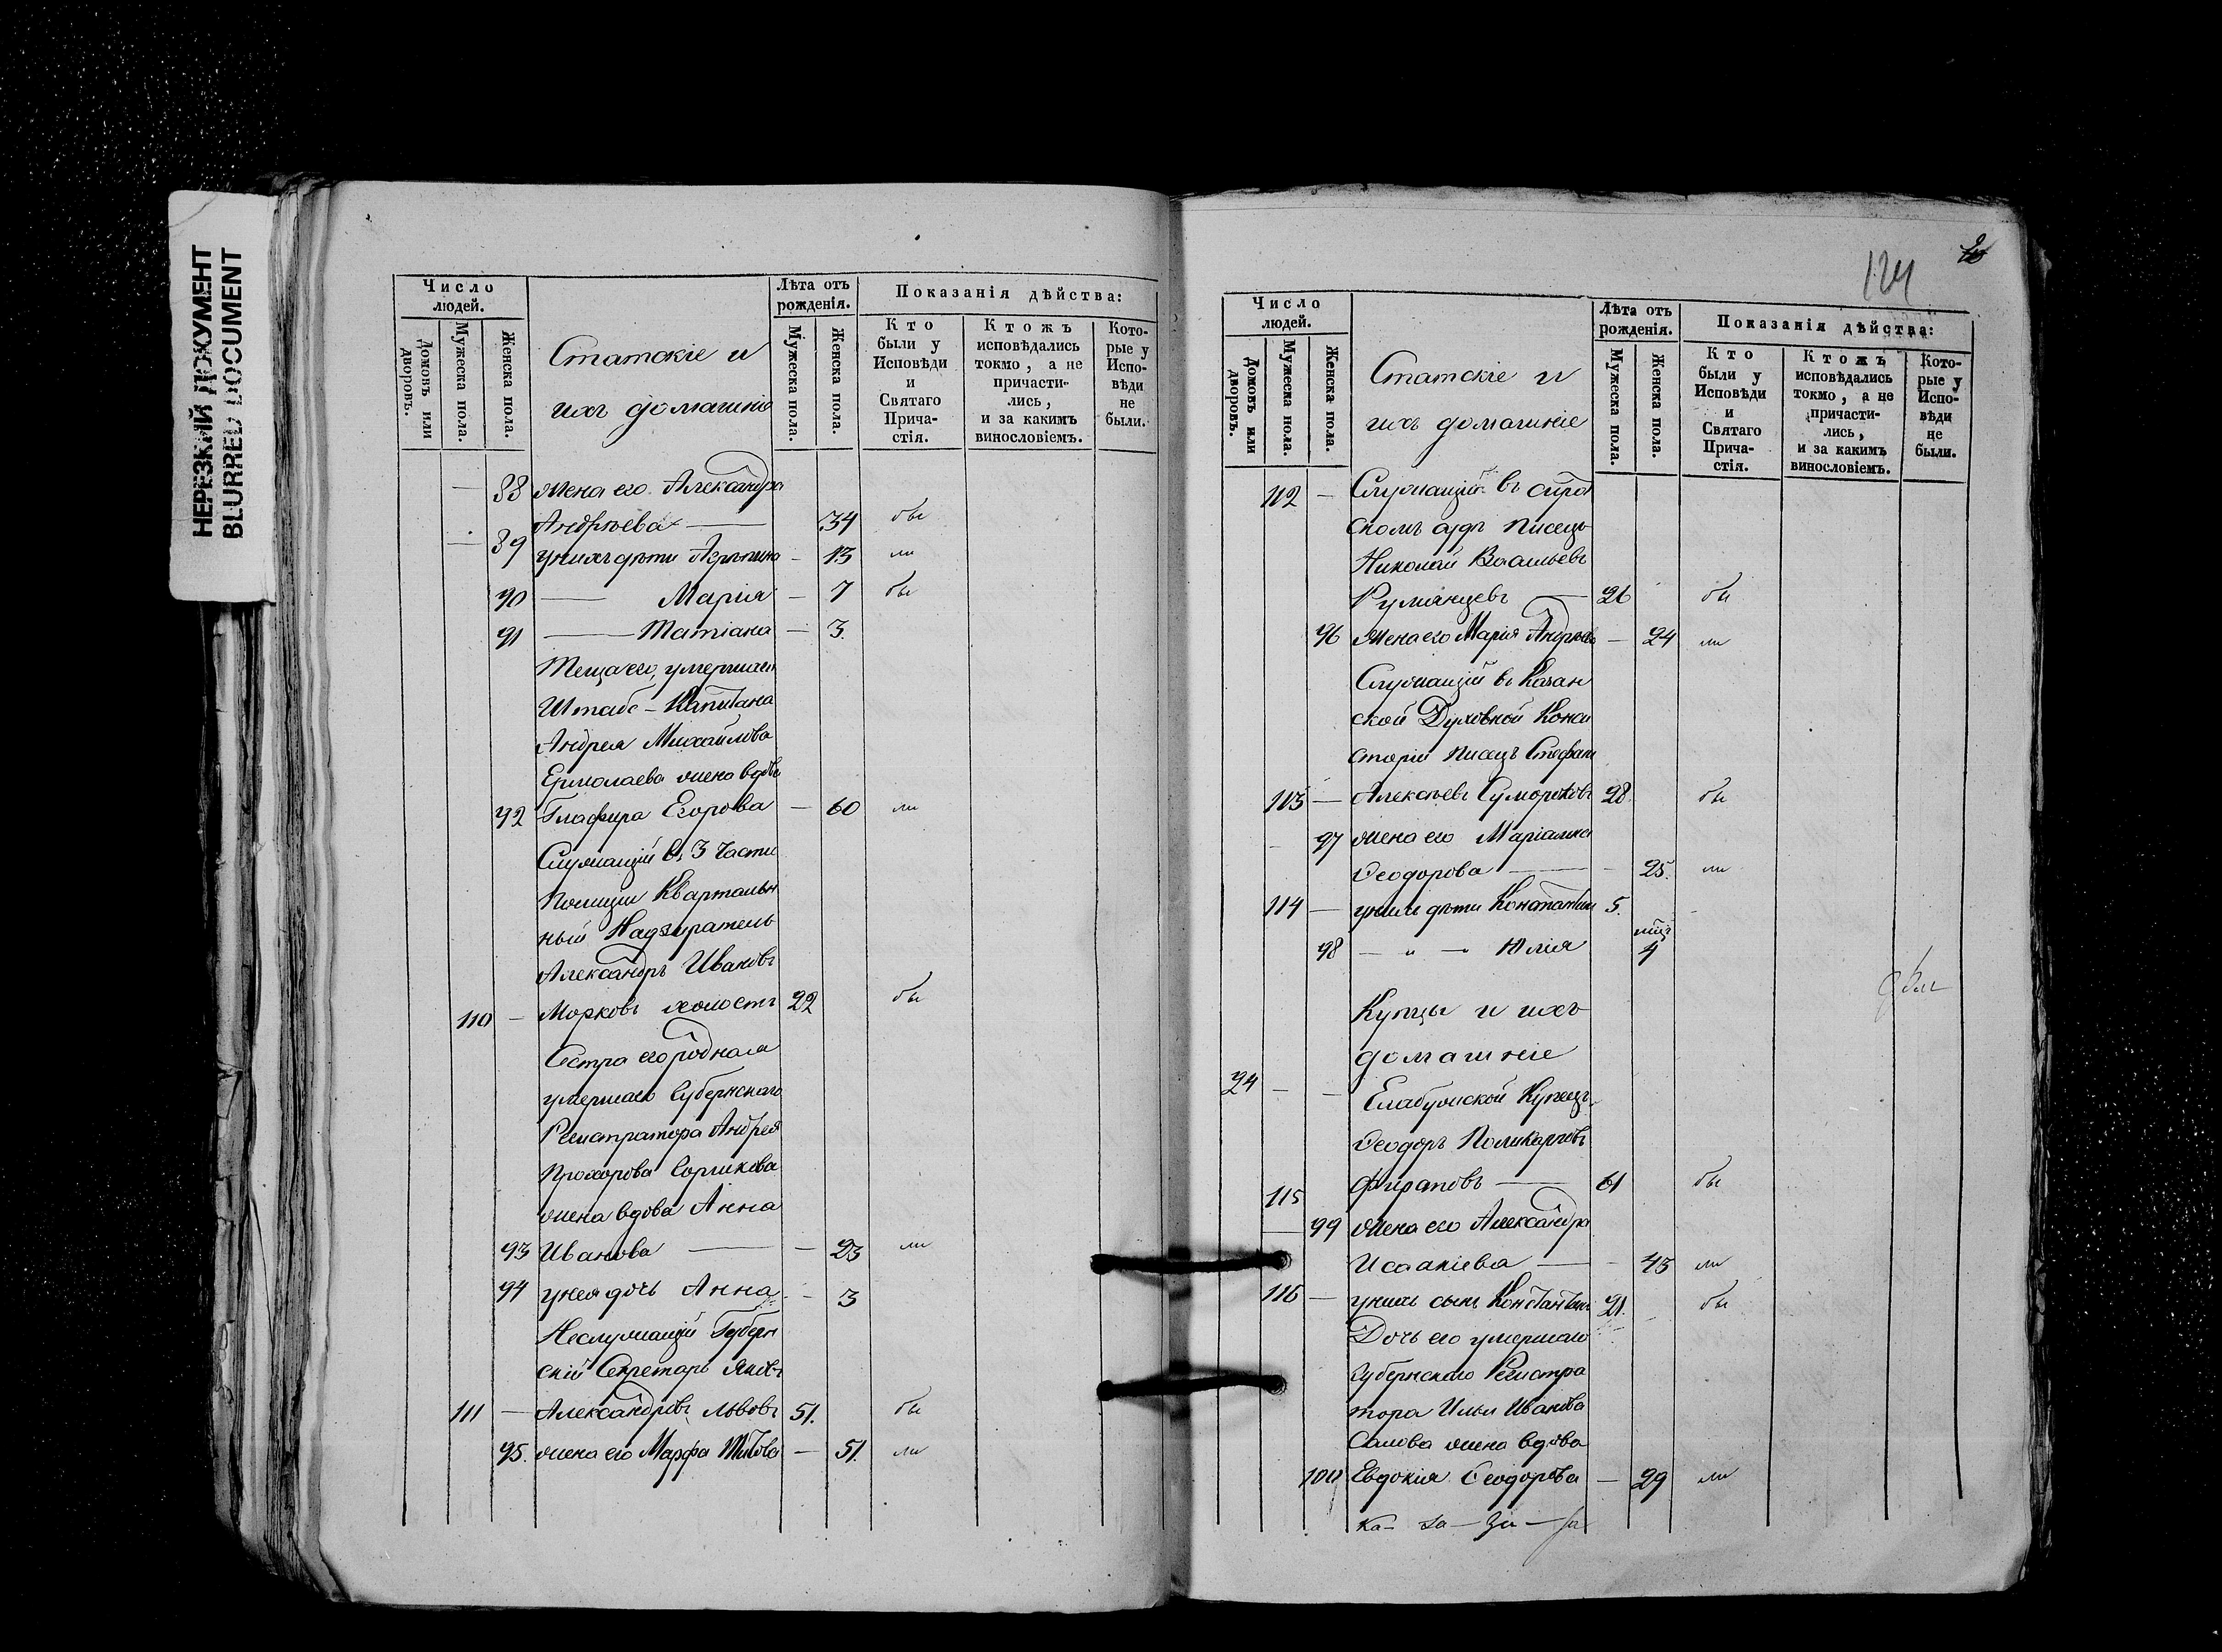 НЕРЕЗКИЙ ДОКУМЕНТ
BLURRED DOCUMENT
Число людей.
Домовъ или дворовъ.
Мужеска пола.
Женска пола.
Статскіе и
ихъ домашніе
Лѣта отъ рожденія.
Мужеска пола.
Женска пола.
Показанія дѣйства:
Кто были у Исповѣди и Святаго Прича-стія.
Ктожъ исповѣдались токмо, а не причасти-лись, и за какимъ винословіемъ.
Кото-рые у Испо-вѣди не были.
— 88 жена его Александра
Андреева — 34 бы
— 89 у нихъ дѣти Агрипина — 13 ли
90 — Марія — 7 бы
91 — Татіана — 3.
Теща его, умершаго
Штабс-Капитана
Андрея Михайлова
Ермолаева жена вдова
92 Глафира Егорова — 60 ли
Служащій въ 3 части
Полиціи Квартальн
ный Надзиратель
Александръ Ивановъ
110 — Морковъ холостъ 22 бы
Сестра его родная
умершаго Губернскаго
Регистратора Андрея
Прохорова
жена вдова Анна
93 Иванова — — 23 ли
94 у нея дочь Анна — 3
Неслужащій Губерн
скій Секретарь Яковъ
111 — Александровъ Львовъ 51. бы
95. жена его Марфа Титова — 51. ли
124
Число людей.
Домовъ или дворовъ.
Мужеска пола.
Женска пола.
Статскіе и
ихъ домашніе
Лѣта отъ рожденія.
Мужеска пола.
Женска пола.
Показанія дѣйства:
Кто были у Исповѣди и Святаго Прича-стія.
Ктожъ исповѣдались токмо, а не причасти-лись, и за какимъ винословіемъ.
Кото-рые у Испо-вѣди не были.
112 — Служащій въ сирот
скомъ судѣ писецъ
Николай Васильевъ
Румянцевъ — 26 бы
96 жена его Марія Андреева — 24 ли
Служащій въ Казан
ской Духовной Конси
сторіи писецъ Стефанъ
113 — Алексѣевъ Сумороковъ 28. бы
97 жена его Маріамна
Ѳеодорова — 25. ли
114 — у нихъ дѣти Константинъ 5.
98 — " — Юлія 4
Купцы и ихъ
домашніе
24 — — Елабужской Купецъ
Ѳеодоръ Поликарповъ
115 Фирятовъ — 61 бы
— 99 жена его Александра
Исаакіева — 43 ли
116 — у нихъ сынъ Константинъ 21. бы
Дочь его умершаго
Губернскаго Регистра
тора Ильи Иванова
Салова жена вдова
100 Евдокія Ѳеодорова — 29 ли